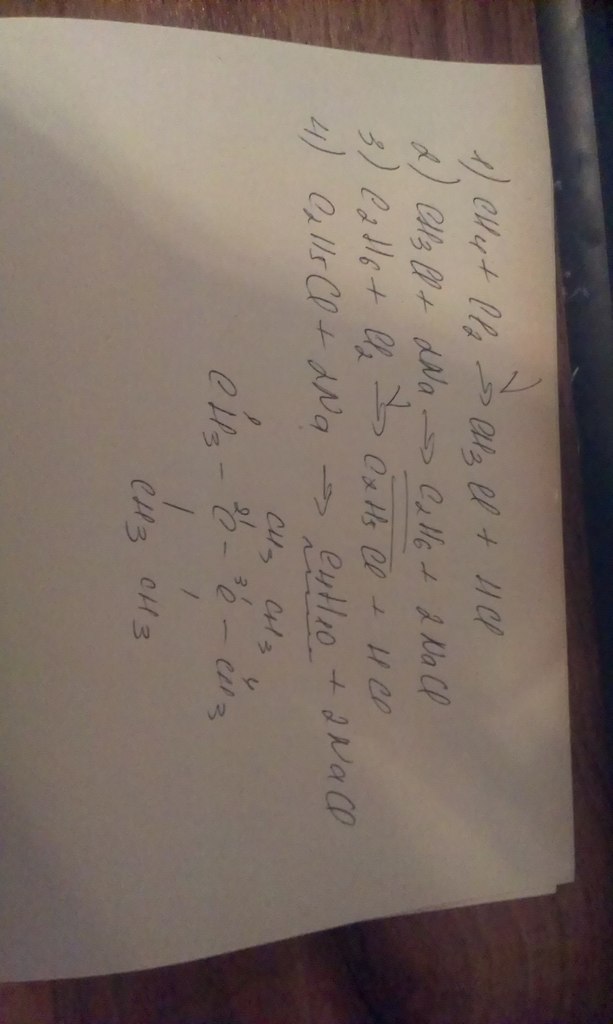 1) CH4 + Cl2 → CH3Cl + HCl
2) CH3Cl + 2Na → C2H6 + 2NaCl
3) C2H6 + Cl2 → C2H5Cl + HCl
4) C2H5Cl + 2Na → C4H10 + 2NaCl
CH3 CH3
1 2 3 4
CH3 – C – C – CH3
CH3 CH3